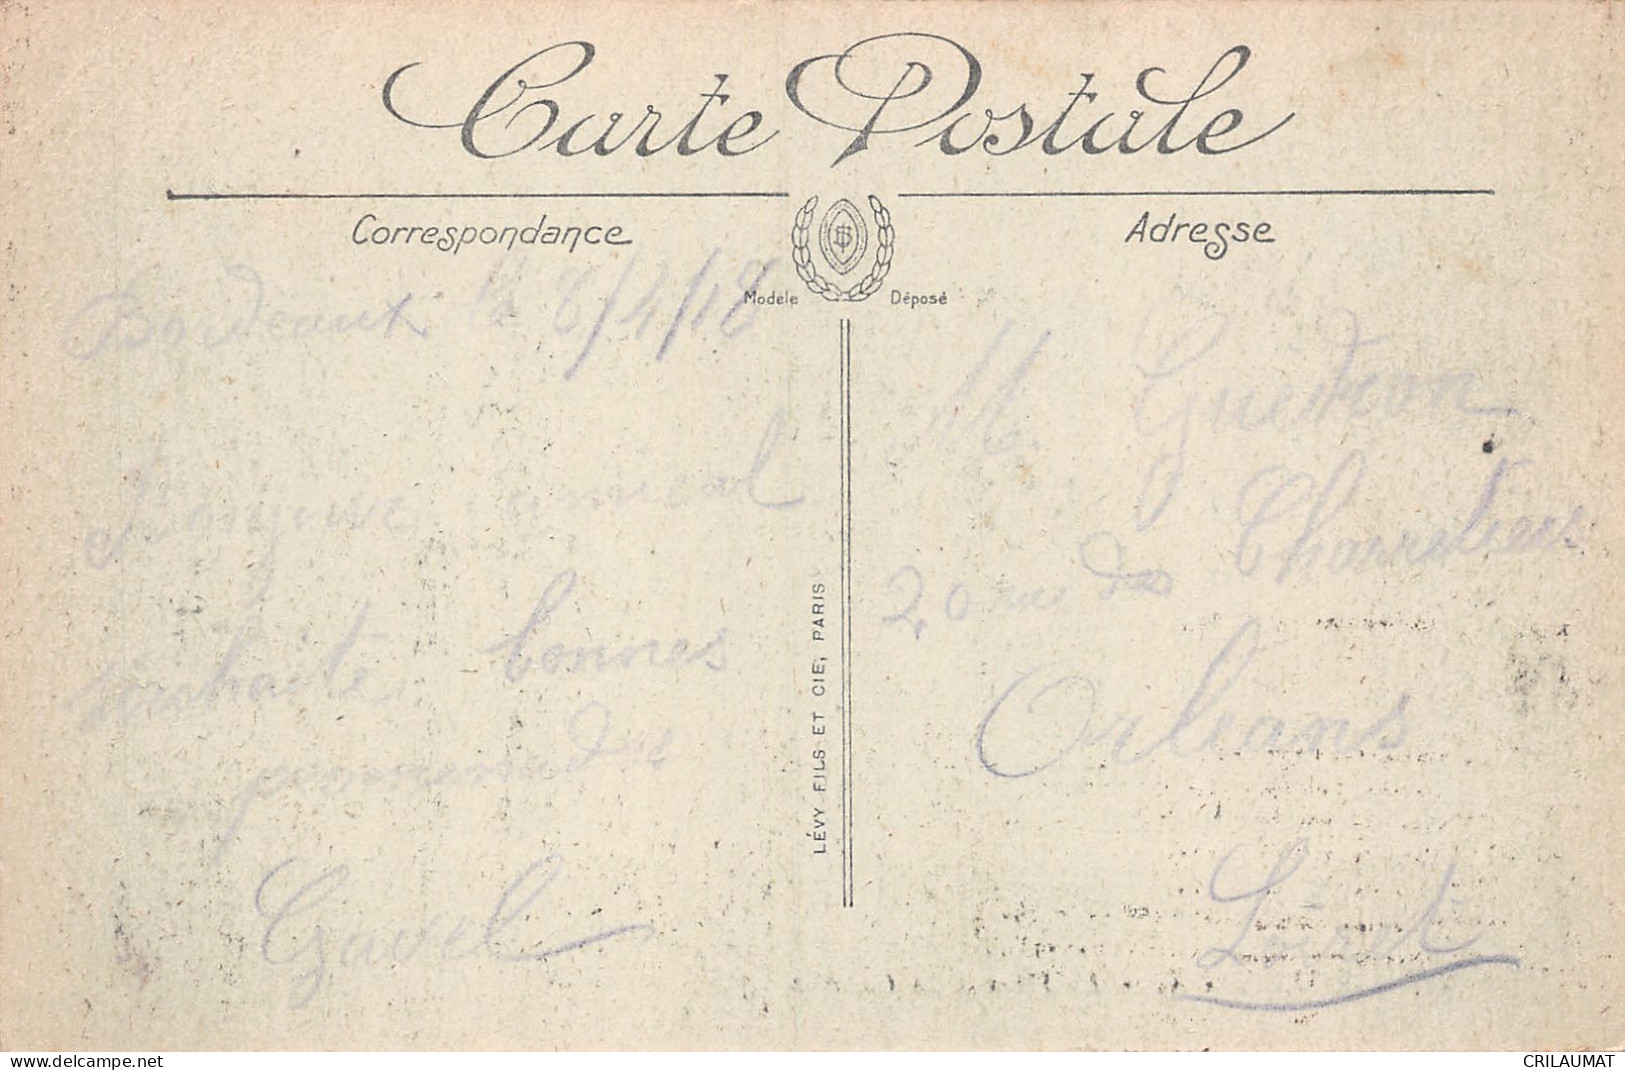 Carte Postale
Correspondance
Adresse
Modèle Déposé
Bordeaux le 8/4/18
Bonjour amical
souhaite bonnes
promenades
Gavel
LÉVY FILS ET CIE, PARIS
M. Guédron
20 rue des Charretiers
Orléans
Loiret
www.delcampe.net
CRILAUMAT